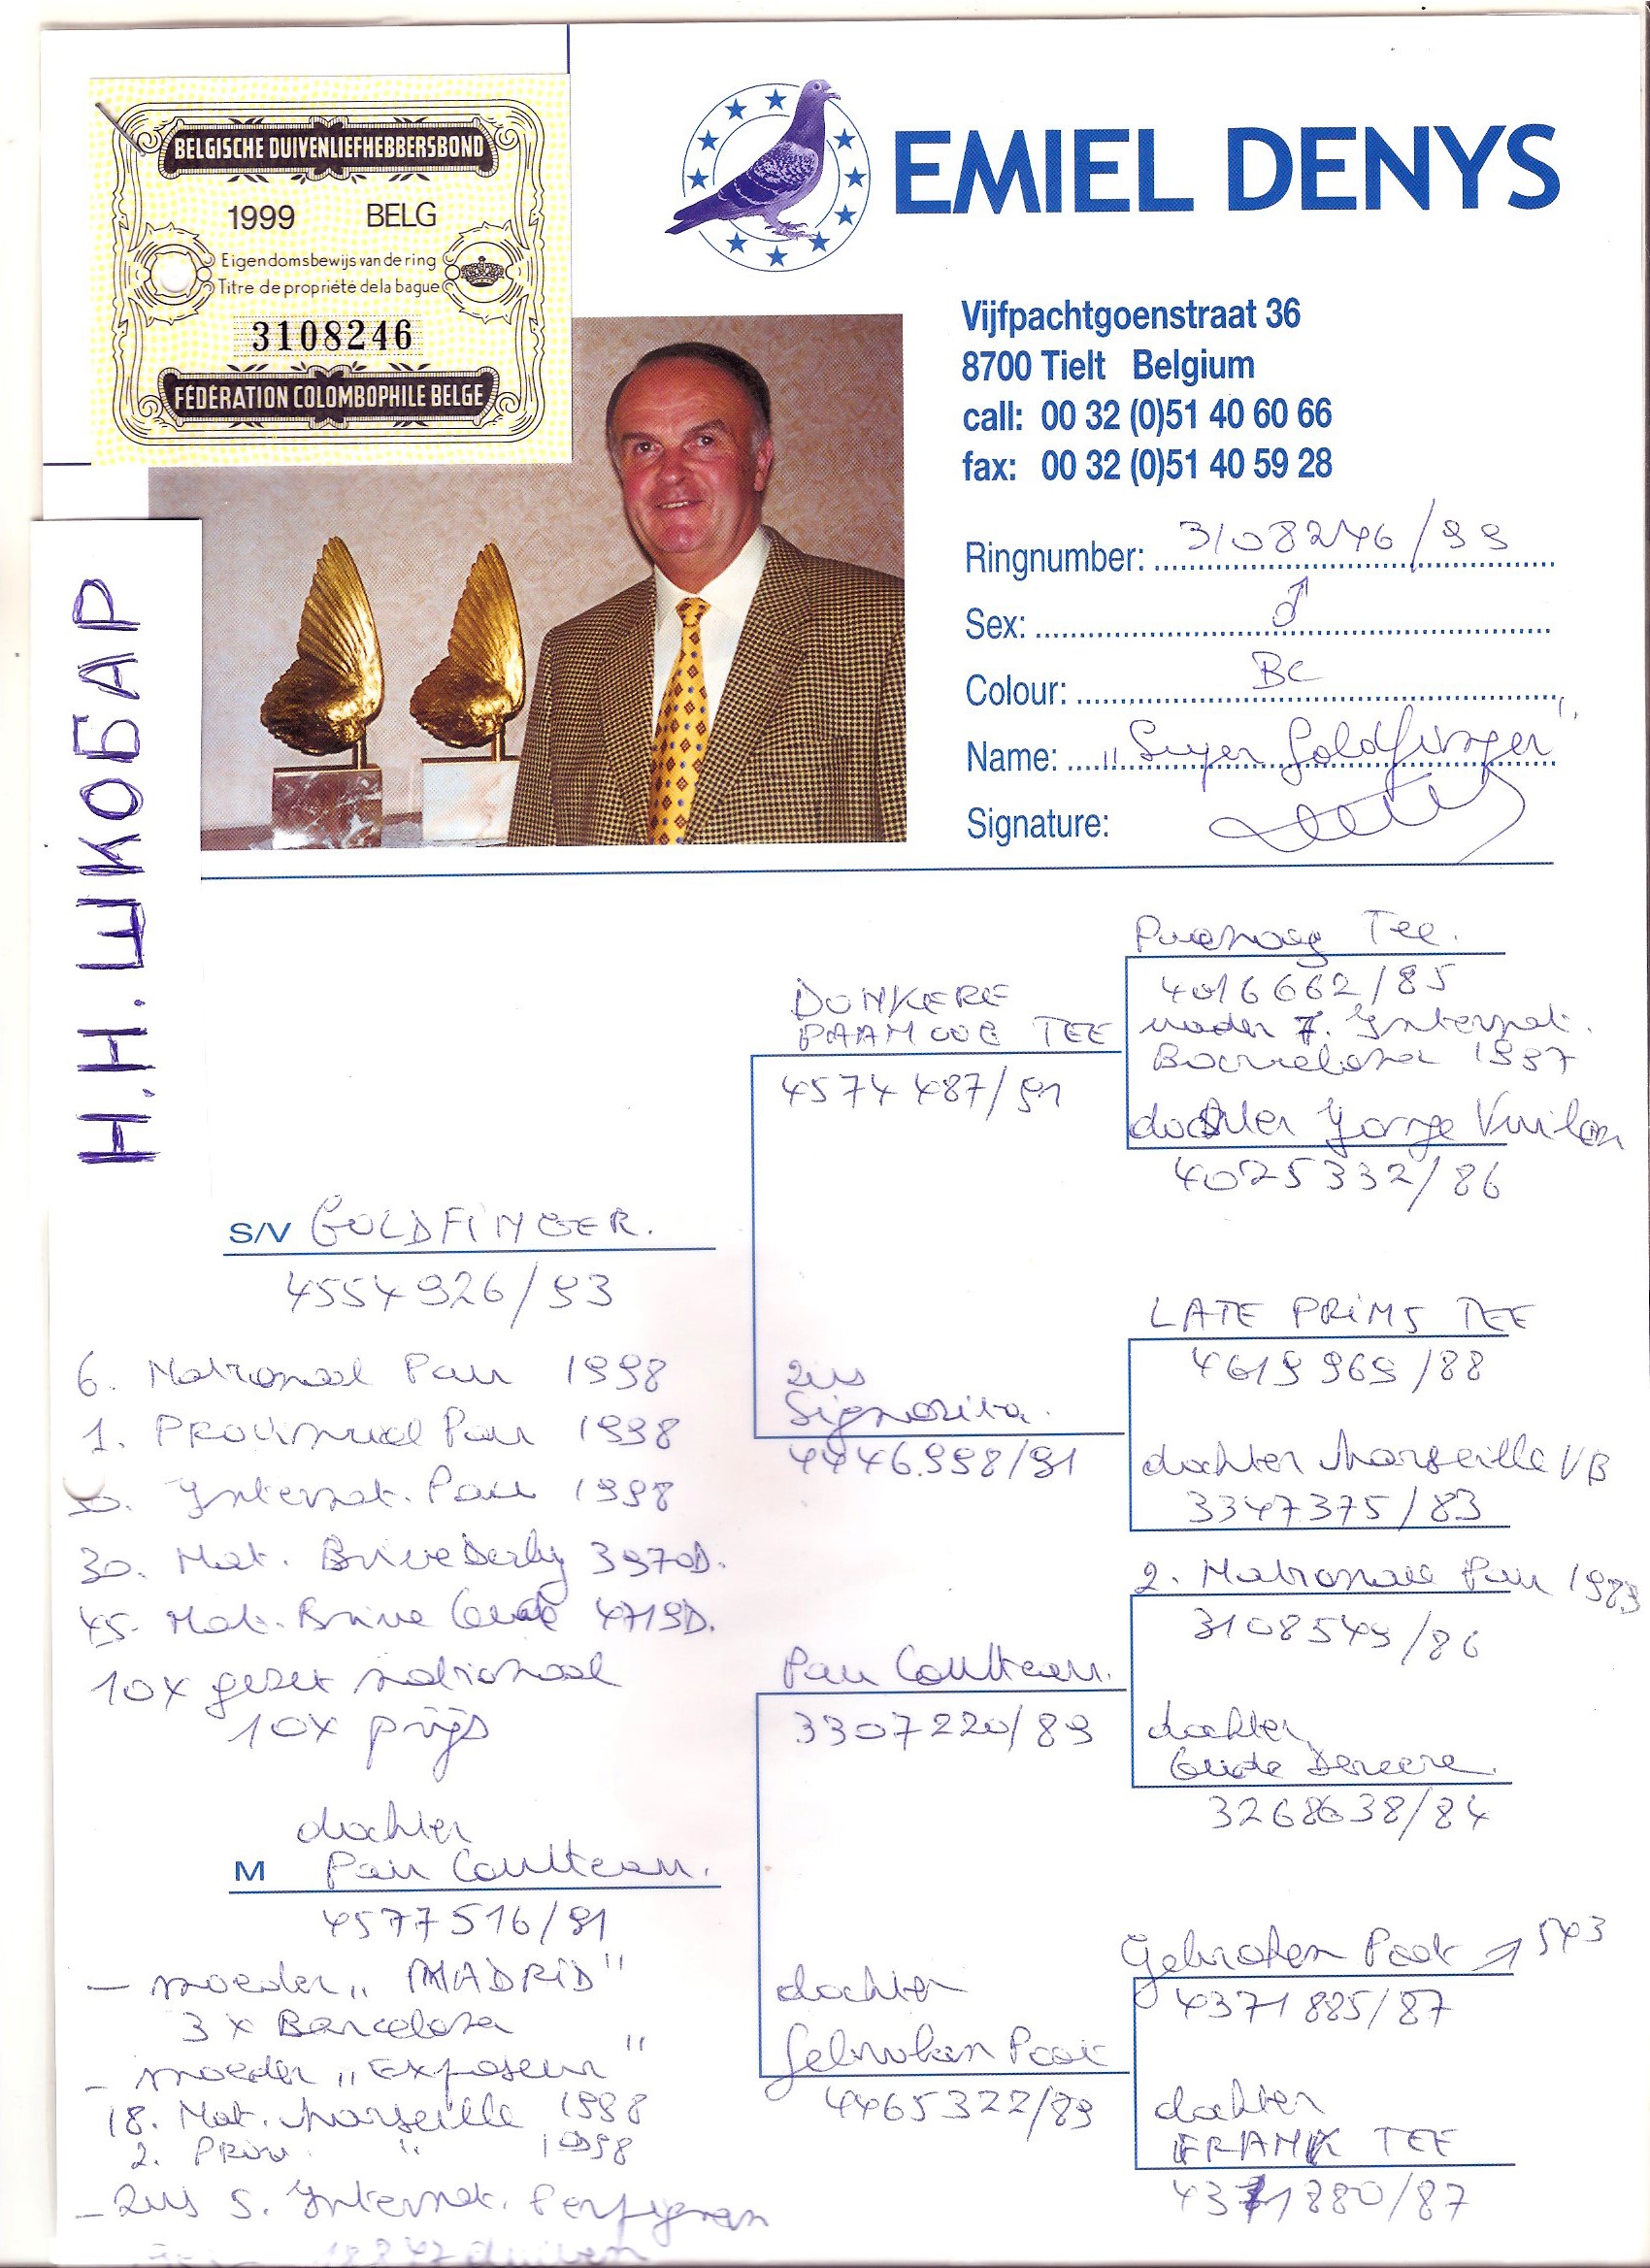 BELGISCHE DUIVENLIEFHEBBERSBOND
1999 BELG
Eigendomsbewijs van de ring
Titre de propriété de la bague
3108246
FÉDÉRATION COLOMBOPHILE BELGE
EMIEL DENYS
Vijfpachtgoenstraat 36
8700 Tielt Belgium
call: 00 32 (0)51 40 60 66
fax: 00 32 (0)51 40 59 28
Ringnumber: 3108246/99
Sex: ♂
Colour: BC
Name: „Super Goldfinger"
Signature:
Н.Н. ШКОБАР
S/V GOLDFINGER.
4554926/93
6. Nationaal Pau 1998
1. Provinciaal Pau 1998
Internat. Pau 1998
30. Nat. Brive Derby 3970D.
45. Nat. Brive Oude 4719D.
10x gezet nationaal
10x prijs
dochter
M Pau Coulteau.
4577516/91
- moeder „MADRID"
3 x Barcelona
- moeder „Exposeur"
18. Nat. Marseille 1998
2. Prov. " 1998
- zus 5. Internat. Perpignan
duiven
DONKERE
TEE
4574487/91
zus
Signorita.
4446998/91
Pau Coulteau.
3307220/89
dochter
Gebroken Poot
4465322/89
Tee.
4016662/85
vader 7. Internat.
Barcelona 1997
dochter Jonge
4025332/86
LATE PRINS TEE
4619969/88
dochter Marseille VB
3347375/83
2. Nationaal Pau 1989
3108549/86
dochter
Oude
3268638/84
Gebroken Poot 543
4371885/87
dochter
FRANK TEE
4371880/87